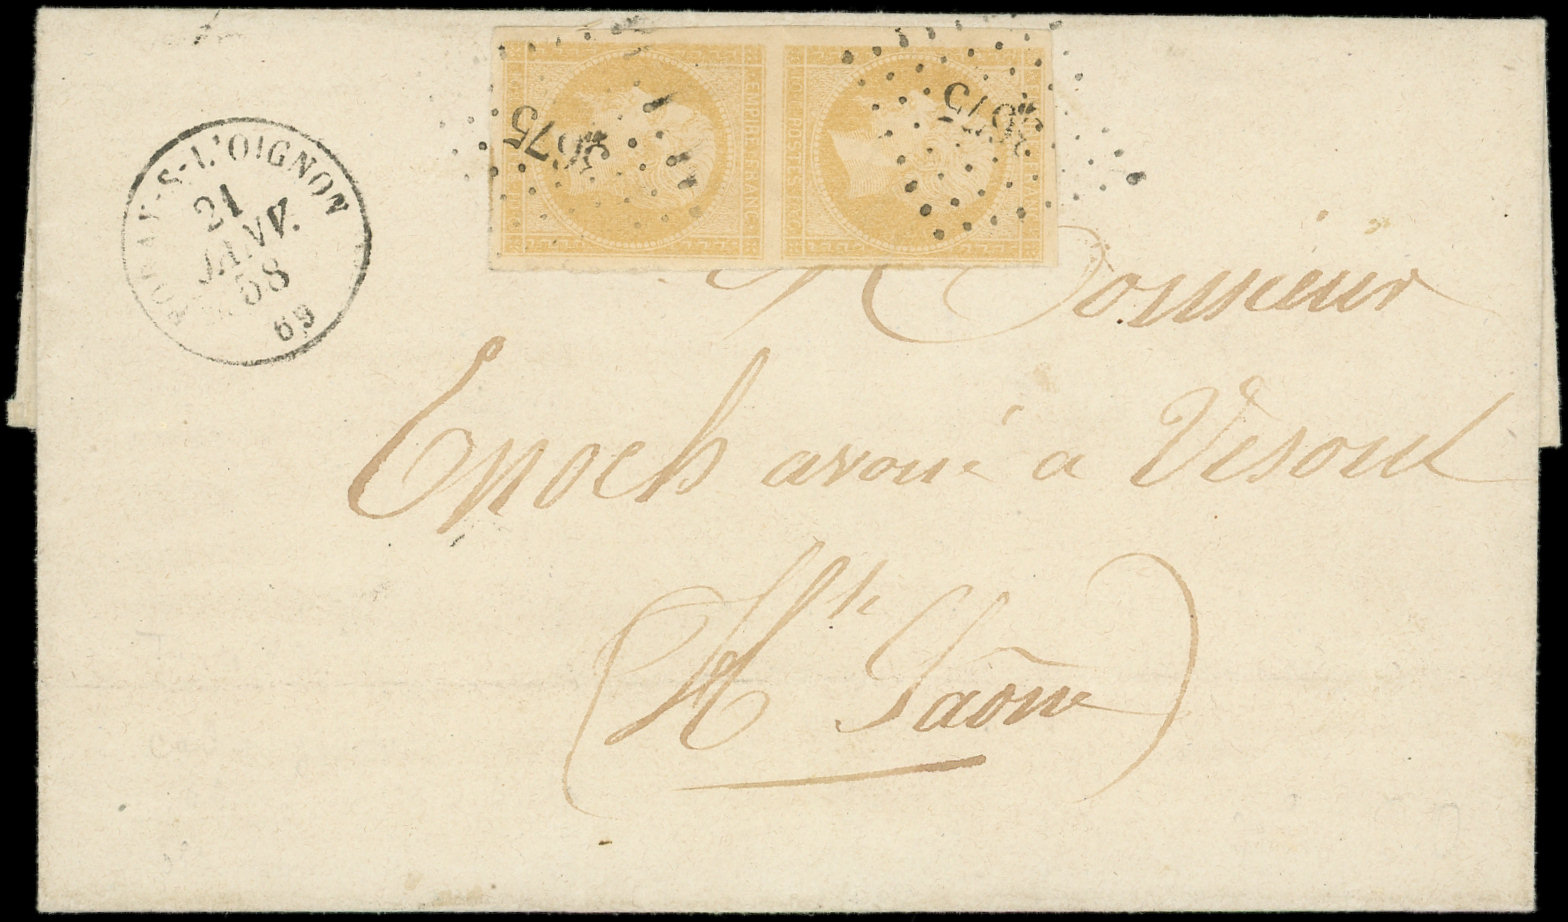 S-L'OIGNON
21
JANV.
58
69
3675
3675
EMPIRE FRANC
POSTES
Monsieur
Enoch avoué a Vesoul
(Hte Saône)